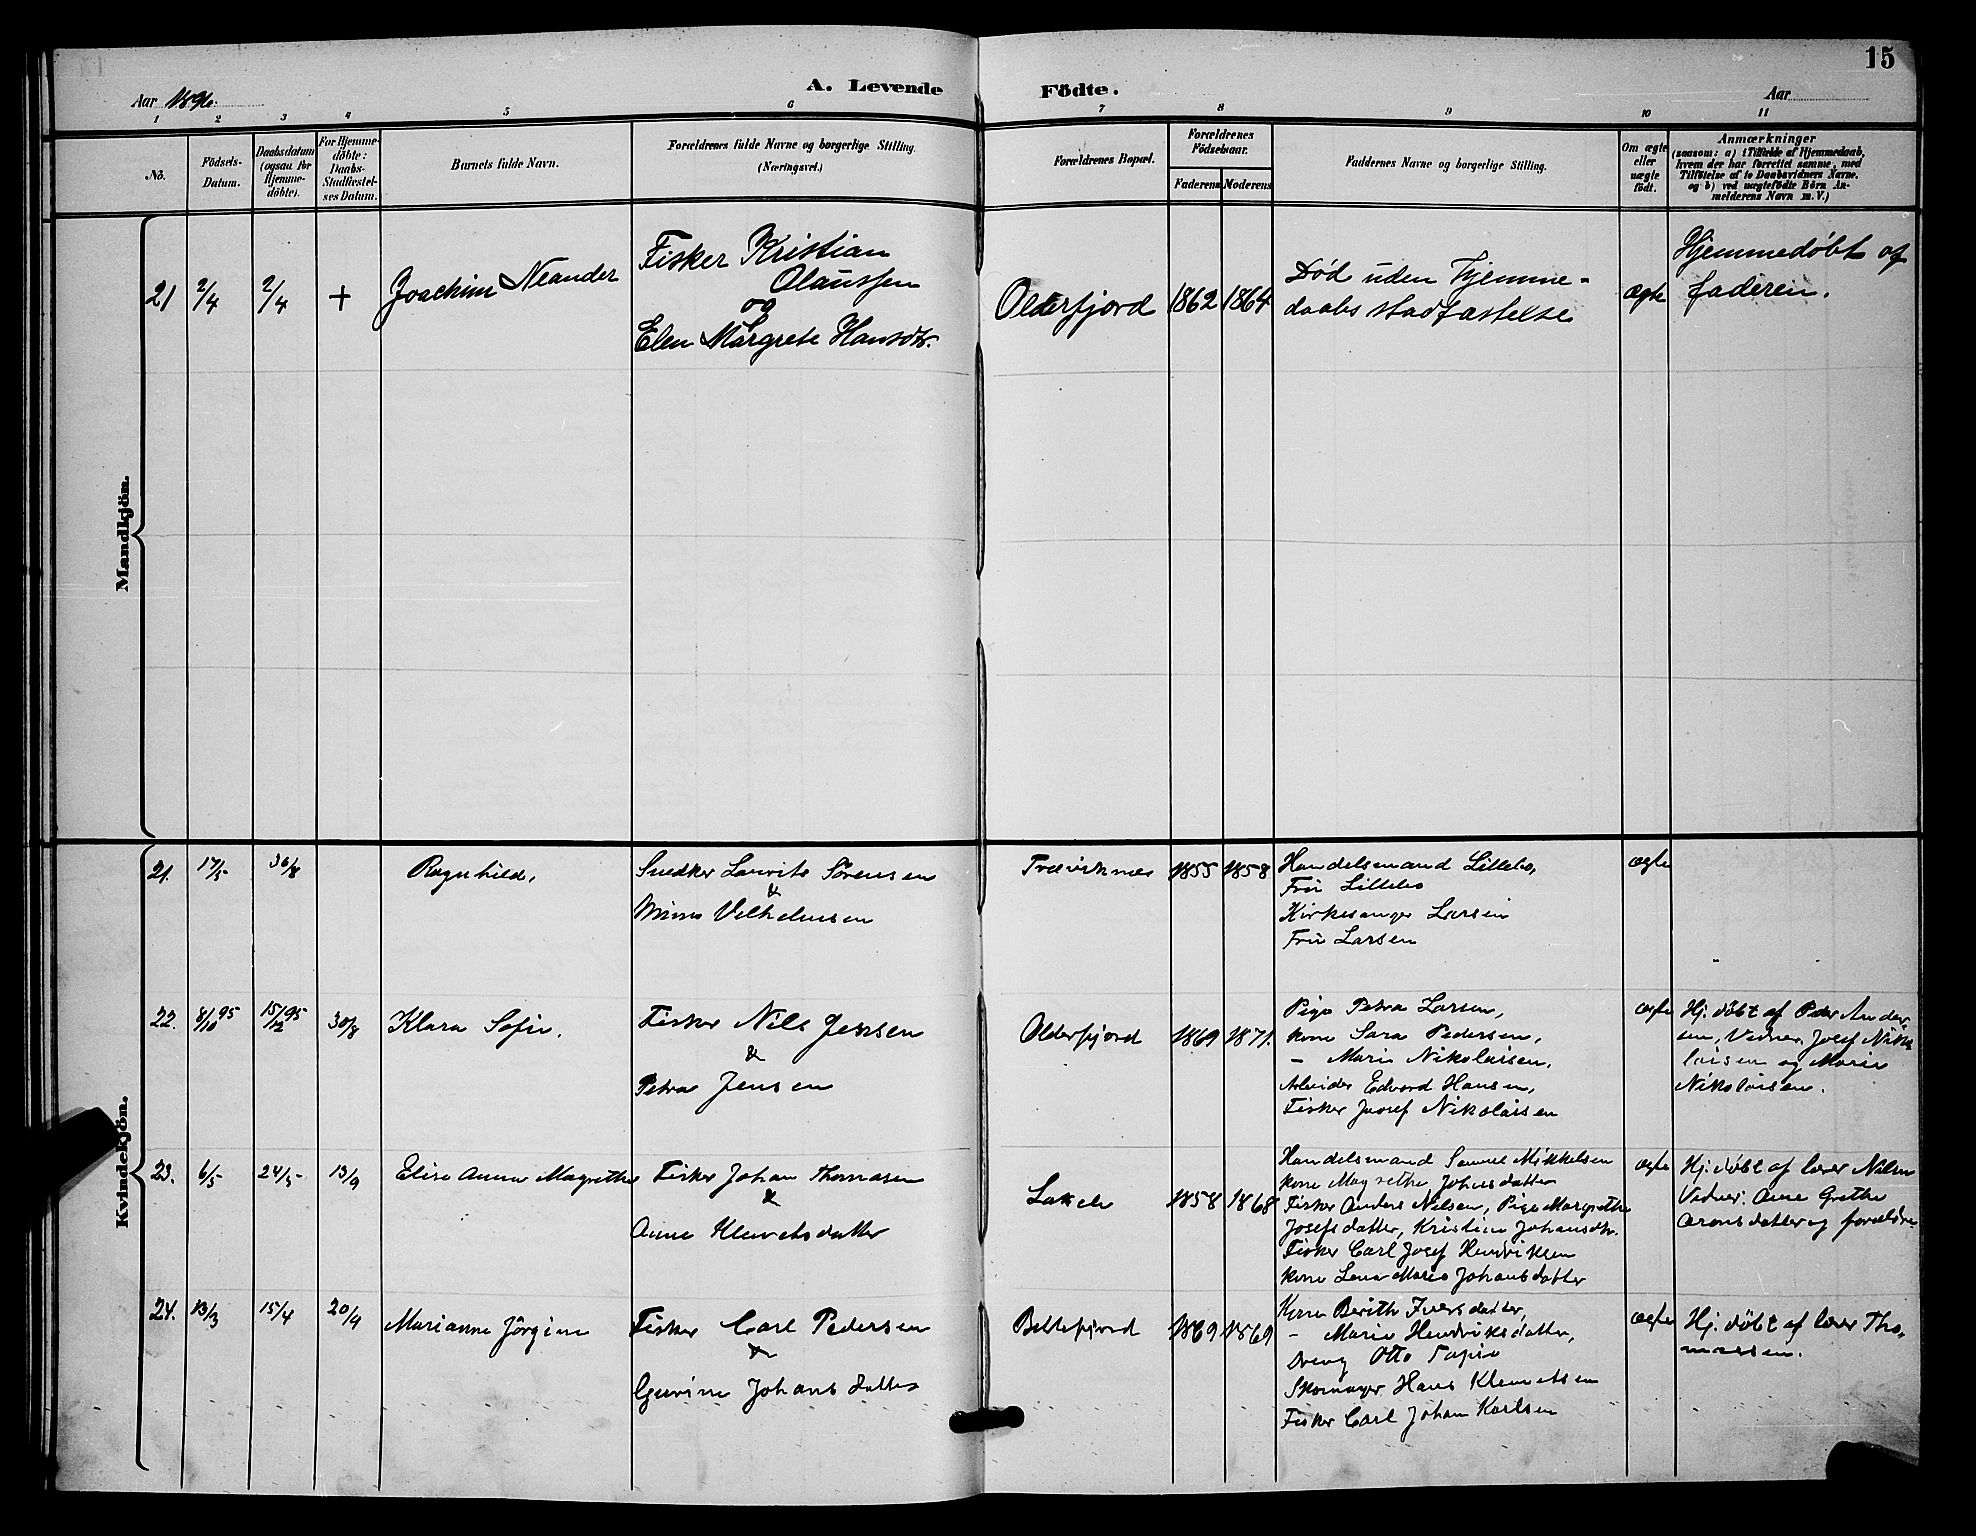 15
A. Levende Födte.
Aar 1896.
Aar
1 2 3 4 5 6 7 8 9 10 11
No.
Födsels-Datum.
Daabsdatum (ogsaa for Hjemme-döbte).
For Hjemme-döbte: Daabs-Stadfæstel-ses Datum.
Barnets fulde Navn.
Forældrenes fulde Navne og borgerlige Stilling.
(Næringsvei.)
Forældrenes Bopæl.
Forældrenes Födselsaar.
Faderens Moderens
Faddernes Navne og borgerlige Stilling.
Om ægte eller uægte födt.
Anmærkninger
(saasom: a) i Tilfælde af Hjemmedaab,
hvem der har forrettet samme, med
Tilföielse af to Daabsvidners Navne.
og b) ved uægtefödte Börn An-
melderens Navn m. V.)
Mandkjön.
21 2/4 2/4 + Joachim Neander
Fisker Kristian
Olaussen
og
Elen Margrete Hansdtr.
Olderfjord 1862 1864
Død uden Hjemme-
daabs stadfæstelse
ægte
Hjemmedøbt af
faderen.
Kvindekjön.
21. 17/5 30/8 Ragnhild,
Snedker Lauritz Sörensen
&
Vilhelmsen
1855 1858
Handelsmand Lillebo,
Fru Lillebo
Kirkesanger Larsen
Fru Larsen
ægte
22. 8/10 95 15/12 95 30/8 Klara Sofie.
Fisker Nils Jensen
&
Petra Jensen
Olderfjord 1869 1871.
Pige Petra Larsen,
kone Sara Pedersen,
– Marie Nikolaisen,
Arbeider Edvard Hansen,
Fisker Josef Nikolaisen
ægte
Hj. döbt af Peder Ander-
sen, Vidner, Josef Niko
laisen og Marie
Nikolaisen.
23. 6/5 24/5 13/9 Elise Anna Magrethe
Fisker Johan Thomasen
&
Anne Klemetsdatter
Lakele 1858 1868
Handelsmand Samuel Mikkelsen
kone Magrethe Johnsdatter
Fisker Anders Nilsen, Pige Margrethe
Josefsdatter, Kristine Johansdtr.
Fisker Carl Josef Hendriksen
kone Lena Maria Johansdatter
ægte
Hj. döbt af lærer Nilsen
Vidner: Anne Grethe
Aronsdatter og forældre
24. 13/3 15/4 20/9 Marianne Jörgine
Fisker Carl Pedersen
&
Johansdatter
Billefjord 1869 1869
Kone Berith Iversdatter,
– Marie Hendriksdatter,
Dreng Otto Tapio
Skomager Hans Klemetsen
Fisker Carl Johan Karlsen
ægte
Hj. döbt af lærer Tho,
massen.